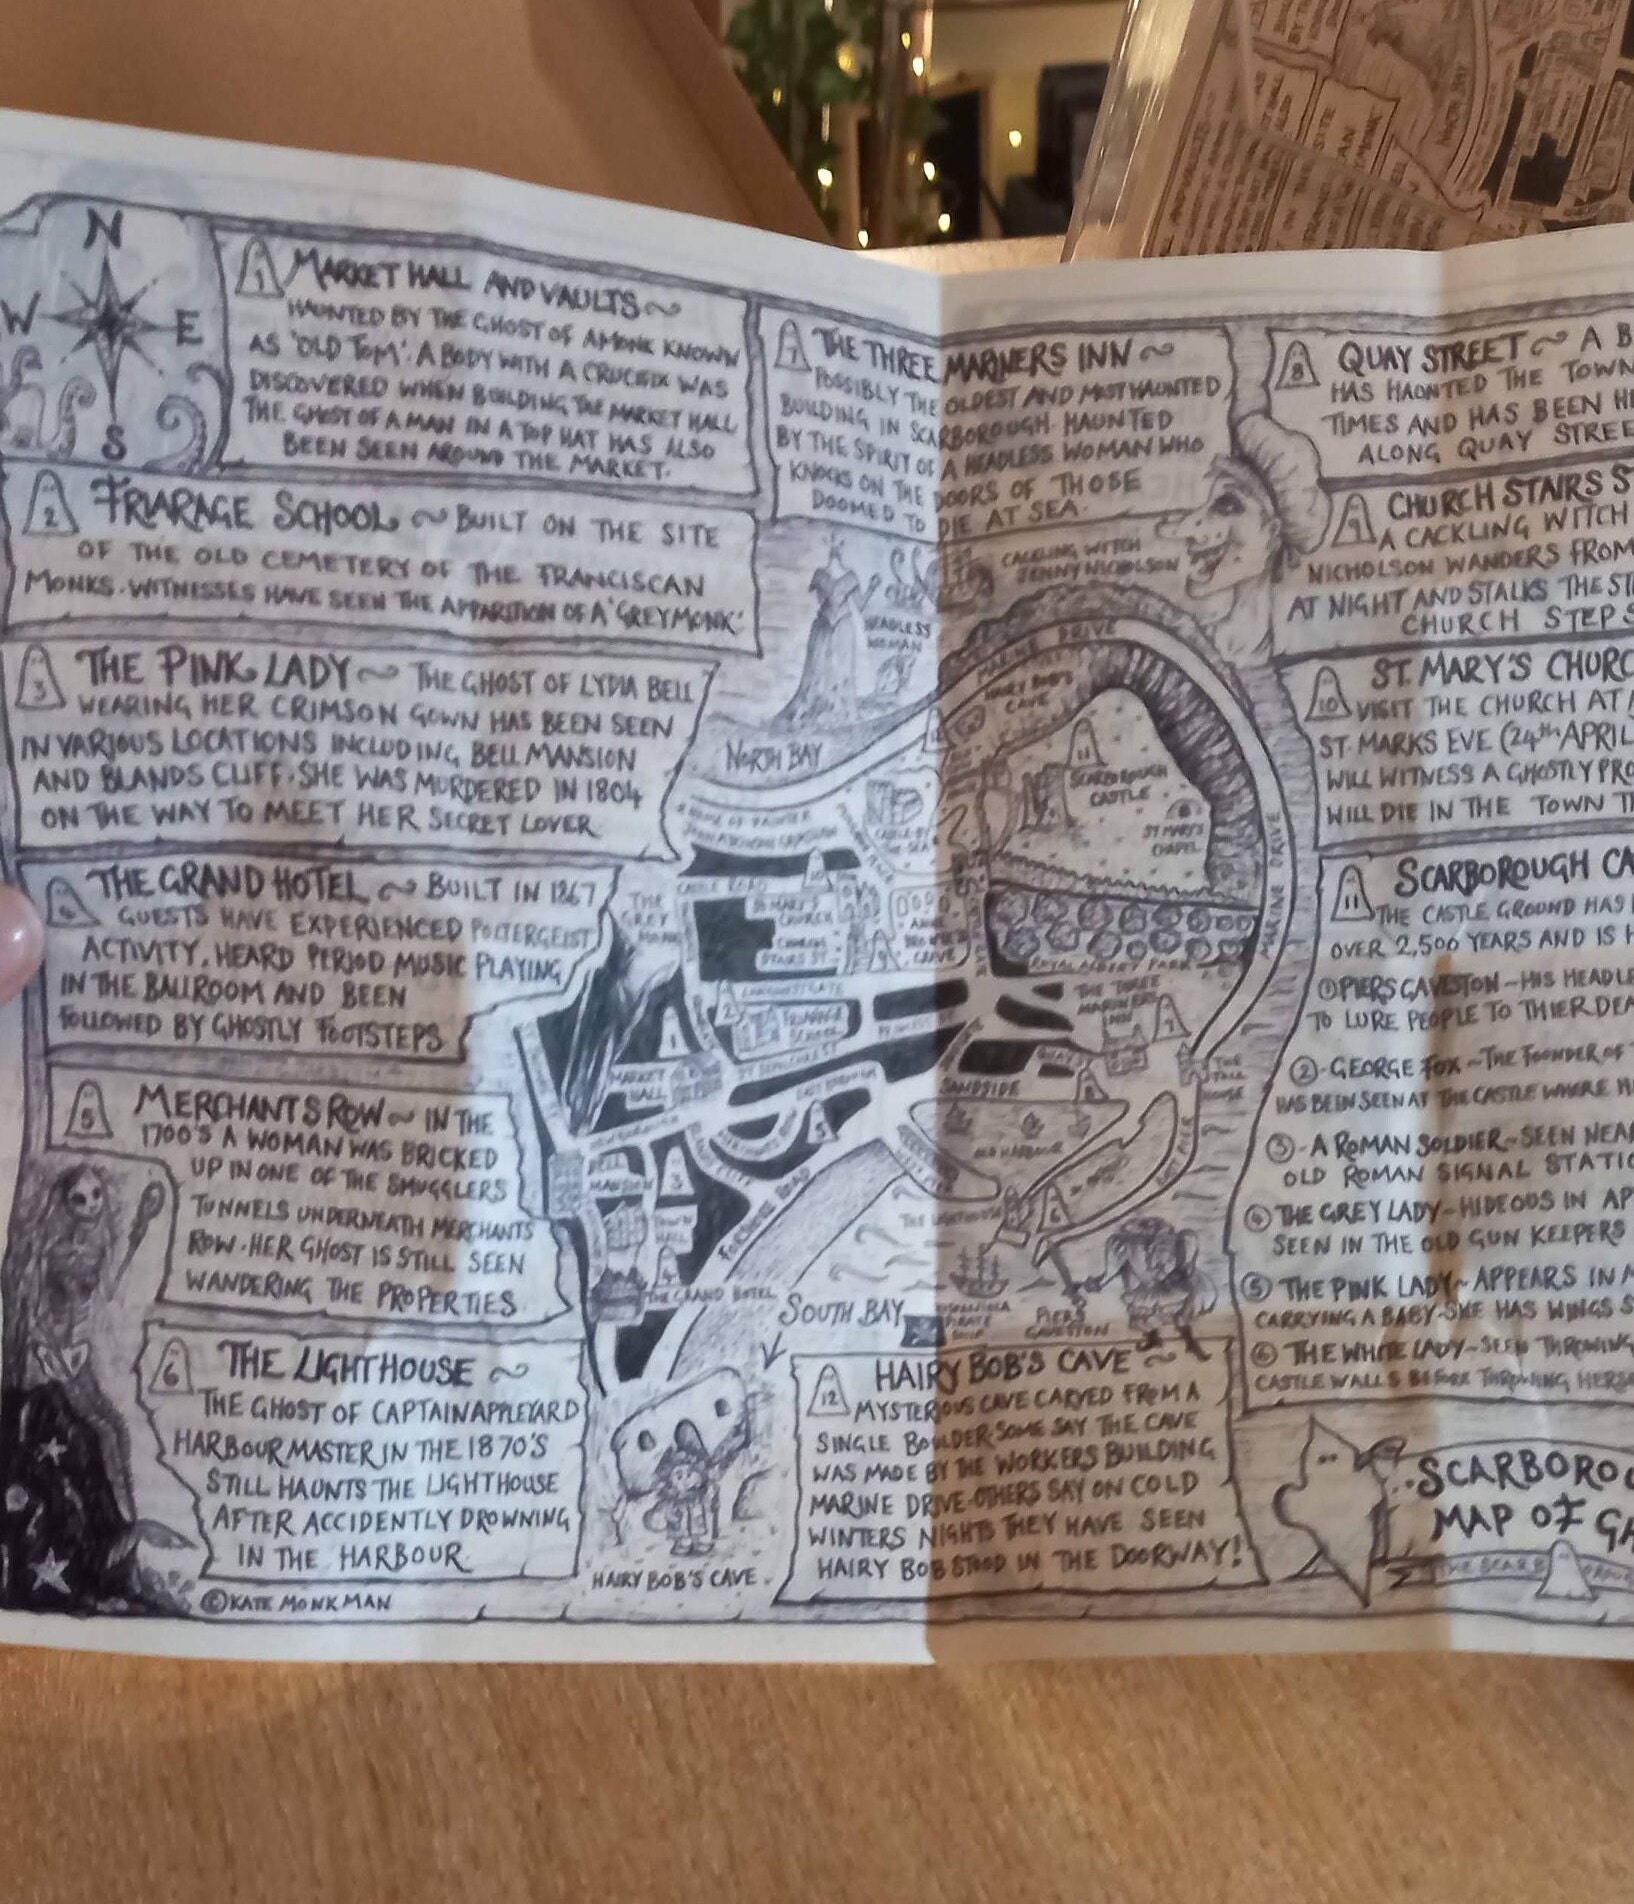 N
W
E
S
1 MARKET HALL AND VAULTS ~
HAUNTED BY THE GHOST OF A MONK KNOWN
AS 'OLD TOM'. A BODY WITH A CRUCIFIX WAS
DISCOVERED WHEN BUILDING THE MARKET HALL
THE GHOST OF A MAN IN A TOP HAT HAS ALSO
BEEN SEEN AROUND THE MARKET.
2 FRIARAGE SCHOOL ~ BUILT ON THE SITE
OF THE OLD CEMETERY OF THE FRANCISCAN
MONKS. WITNESSES HAVE SEEN THE APPARITION OF A 'GREY MONK'
3 THE PINK LADY ~ THE GHOST OF LYDIA BELL
WEARING HER CRIMSON GOWN HAS BEEN SEEN
IN VARIOUS LOCATIONS INCLUDING BELL MANSION
AND BLANDS CLIFF. SHE WAS MURDERED IN 1804
ON THE WAY TO MEET HER SECRET LOVER
4 THE GRAND HOTEL ~ BUILT IN 1867
GUESTS HAVE EXPERIENCED POLTERGEIST
ACTIVITY, HEARD PERIOD MUSIC PLAYING
IN THE BALLROOM AND BEEN
FOLLOWED BY GHOSTLY FOOTSTEPS
5 MERCHANTS ROW ~ IN THE
1700'S A WOMAN WAS BRICKED
UP IN ONE OF THE SMUGGLERS
TUNNELS UNDERNEATH MERCHANTS
ROW. HER GHOST IS STILL SEEN
WANDERING THE PROPERTIES
6 THE LIGHTHOUSE ~
THE GHOST OF CAPTAIN APPLEYARD
HARBOUR MASTER IN THE 1870'S
STILL HAUNTS THE LIGHTHOUSE
AFTER ACCIDENTLY DROWNING
IN THE HARBOUR
©KATE MONKMAN
7 THE THREE MARINERS INN ~
POSSIBLY THE OLDEST AND MOST HAUNTED
BUILDING IN SCARBOROUGH. HAUNTED
BY THE SPIRIT OF A HEADLESS WOMAN WHO
KNOCKS ON THE DOORS OF THOSE
DOOMED TO DIE AT SEA.
CACKLING WITCH
JENNY NICHOLSON
HEADLESS
WOMAN
MARINE DRIVE
HAIRY BOB'S
CAVE
NORTH BAY
11
SCARBOROUGH
CASTLE
ST MARY'S
CHAPEL
MARINE DRIVE
CASTLE ROAD
10
ST MARY'S
CHURCH
THE
GREY
MONK
CHURCH
STAIRS ST
9
ROYAL ALBERT PARK
THE THREE
MARINERS
INN
7
2
FRIARAGE
SCHOOL
1
MARKET
HALL
SANDSIDE
8
OLD HARBOUR
EAST PIER
5
BELL
MANSION
3
TOWN
HALL
FORESHORE ROAD
THE LIGHTHOUSE
6
4
THE GRAND HOTEL
SOUTH BAY
HISPANIOLA
PIRATE
SHIP
PIERS
GAVESTON
HAIRY BOB'S CAVE
12 HAIRY BOB'S CAVE ~
MYSTERIOUS CAVE CARVED FROM A
SINGLE BOULDER. SOME SAY THE CAVE
WAS MADE BY THE WORKERS BUILDING
MARINE DRIVE. OTHERS SAY ON COLD
WINTERS NIGHTS THEY HAVE SEEN
HAIRY BOB STOOD IN THE DOORWAY!
8 QUAY STREET ~ A B
HAS HAUNTED THE TOWN
TIMES AND HAS BEEN HE
ALONG QUAY STREE
9 CHURCH STAIRS S
A CACKLING WITCH
NICHOLSON WANDERS FROM
AT NIGHT AND STALKS THE ST
CHURCH STEPS
10 ST. MARY'S CHURC
VISIT THE CHURCH AT
ST. MARKS EVE (24th APRIL
WILL WITNESS A GHOSTLY PRO
WILL DIE IN THE TOWN T
11 SCARBOROUGH CA
THE CASTLE GROUND HAS
OVER 2,500 YEARS AND IS H
① PIERS GAVESTON ~ HIS HEADLE
TO LURE PEOPLE TO THIER DEA
② GEORGE FOX ~ THE FOUNDER OF
HAS BEEN SEEN AT THE CASTLE WHERE H
③ A ROMAN SOLDIER ~ SEEN NEA
OLD ROMAN SIGNAL STATIO
④ THE GREY LADY ~ HIDEOUS IN AP
SEEN IN THE OLD GUN KEEPERS
⑤ THE PINK LADY ~ APPEARS IN
CARRYING A BABY. SHE HAS WINGS S
⑥ THE WHITE LADY ~ SEEN THROWING
CASTLE WALLS BEFORE THROWING HERSE
SCARBOROU
MAP OF GH